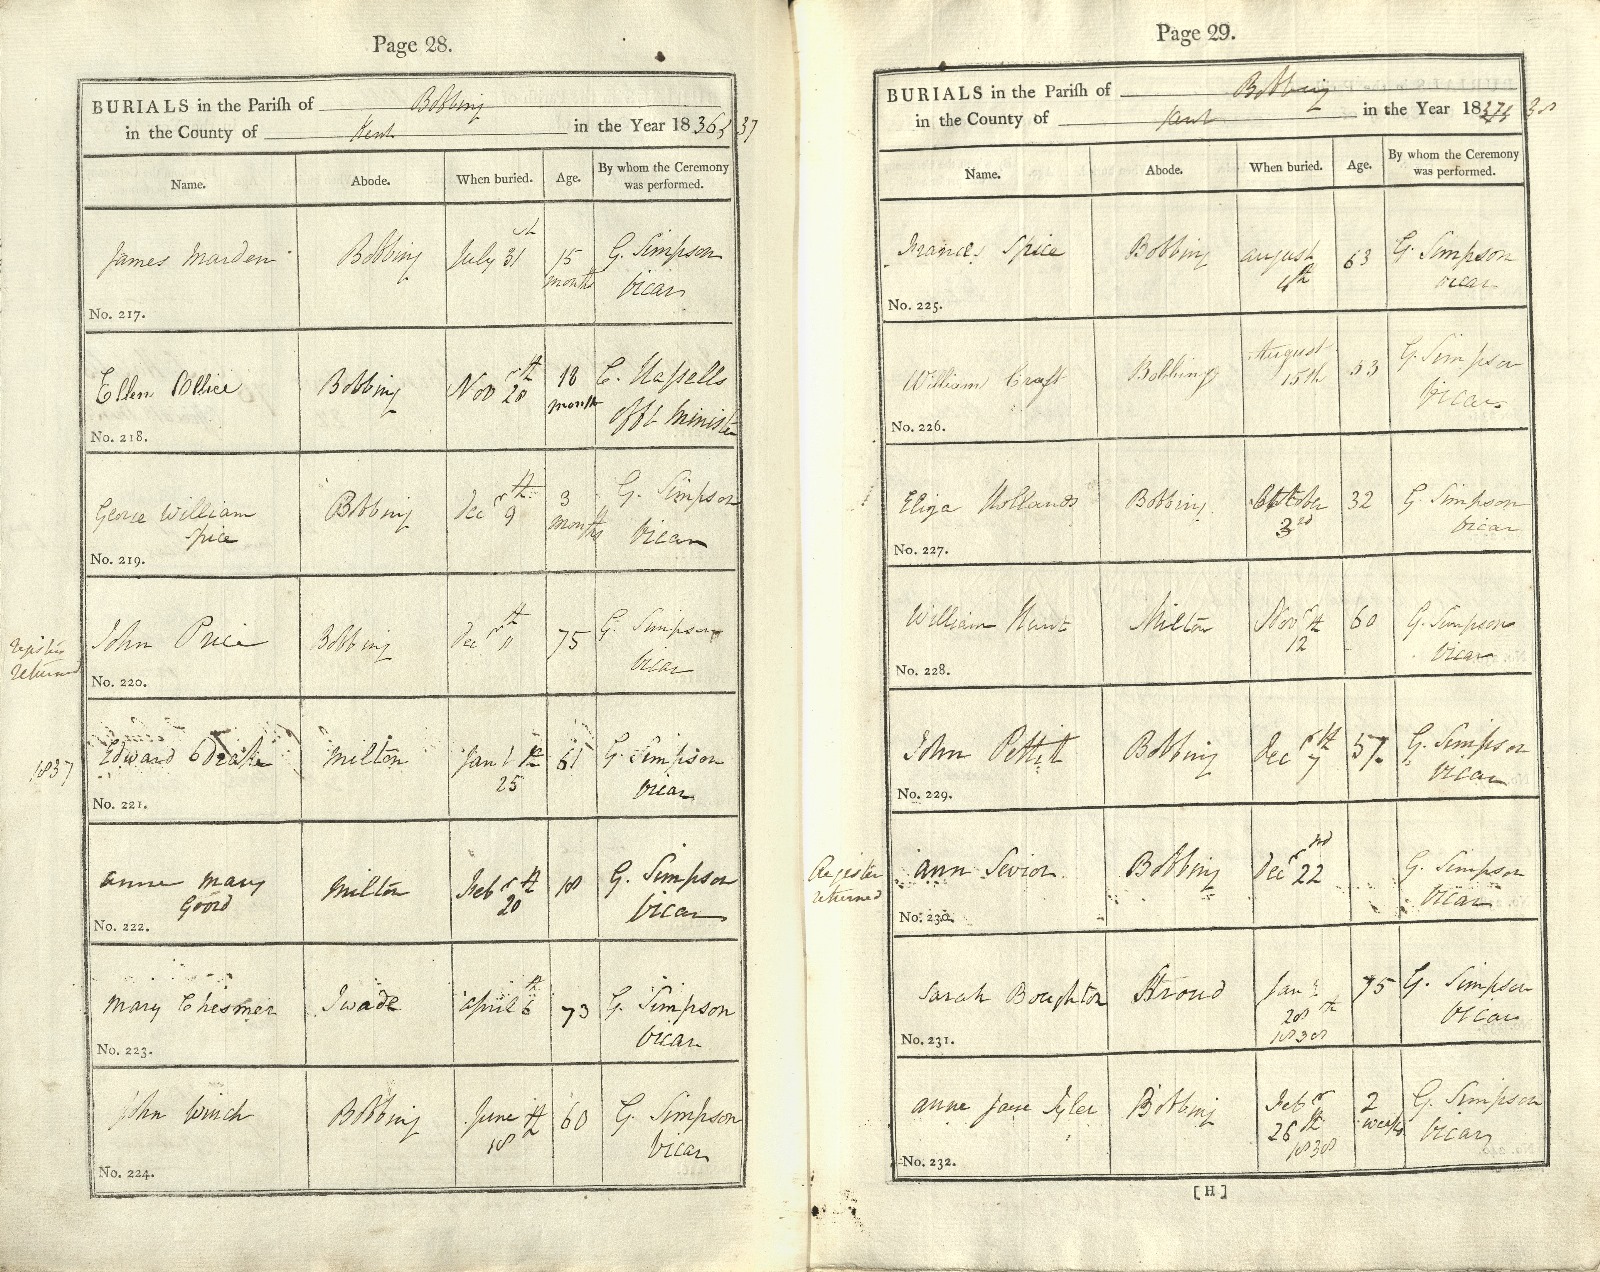 Page 28.
BURIALS in the Parish of Bobbing
in the County of Kent in the Year 1836 & 37
Name. Abode. When buried. Age. By whom the Ceremony was performed.
James Marden Bobbing July 31st 15 months G. Simpson Vicar
No. 217.
Ellen Bobbing Novr 20th 18 months C. Hassells offt Minister
No. 218.
George William Spice Bobbing Decr 9th 3 months G. Simpson Vicar
No. 219.
register returned
John Price Bobbing Decr 11th 75 G. Simpson Vicar
No. 220.
1837
Edward Drake Milton Jany 25th 61 G. Simpson Vicar
No. 221.
Anne Mary Goord Milton Febr 20th 18 G. Simpson Vicar
No. 222.
Mary Chesmer Iwade April 6th 73 G. Simpson Vicar
No. 223.
John Winch Bobbing June 18th 60 G. Simpson Vicar
No. 224.
Page 29.
BURIALS in the Parish of Bobbing
in the County of Kent in the Year 1837 & 38
Name. Abode. When buried. Age. By whom the Ceremony was performed.
Frances Spice Bobbing August 4th 63 G. Simpson Vicar
No. 225.
William Croft Bobbing August 15th 53 G. Simpson Vicar
No. 226.
Eliza Hollands Bobbing October 3rd 32 G. Simpson Vicar
No. 227.
William Hunt Milton Novr 12th 60 G. Simpson Vicar
No. 228.
John Pettit Bobbing Decr 7th 57. G. Simpson Vicar
No. 229.
Register returned
Ann Sevior Bobbing Decr 22nd G. Simpson Vicar
No. 230.
Sarah Boughton Stroud Jany 28th 1838 75 G. Simpson Vicar
No. 231.
Anne Jane Tyler Bobbing Febr 26th 1838 2 weeks G. Simpson Vicar
No. 232.
[H]